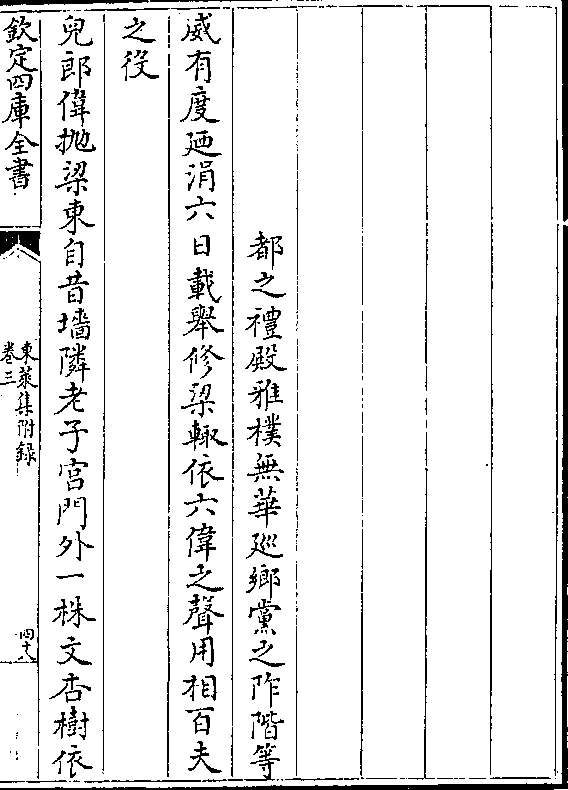 都之禮殿雅樸無華巡鄉黨之阼階等
威有度廼涓六日載舉修梁輙依六偉之聲用相百夫
之役
兒郎偉抛梁東自昔墻隣老子宫門外一株文杏樹依
欽定四庫全書
東萊集附録
卷三
四十八